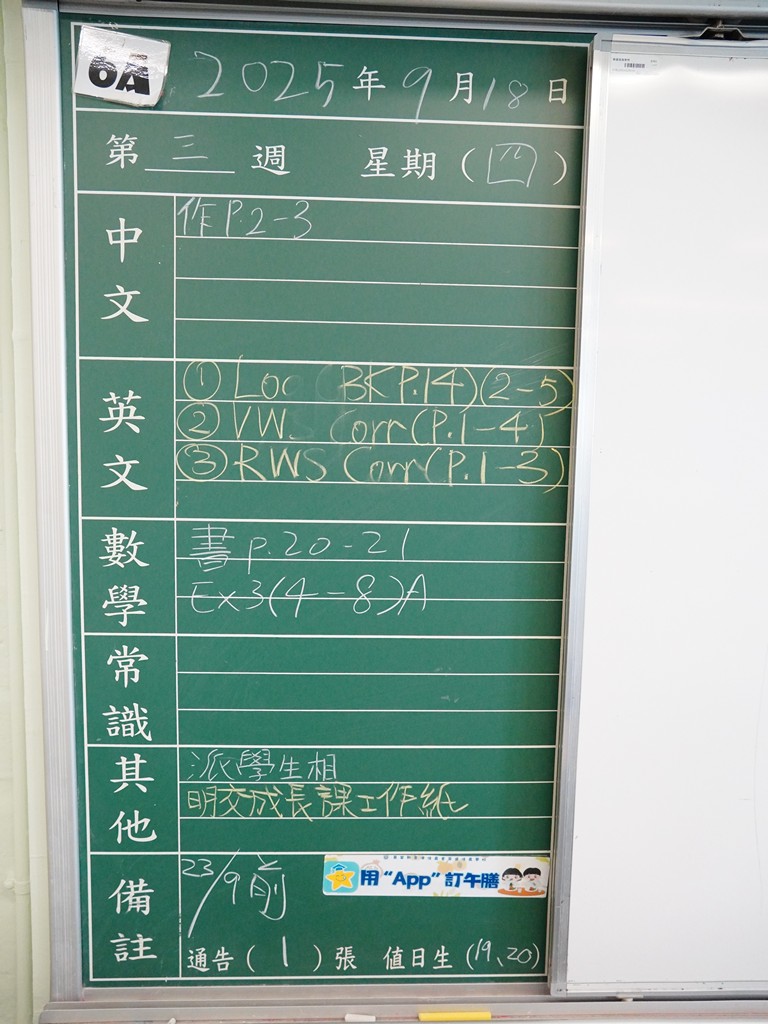 6A
2025年9月18日
第三週 星期(四)
中文
作 P.2-3
英文
① Loc (BK P.14)(2-5)
② VWS Corr(P.1-4)
③ RWS Corr(P.1-3)
數學
書 p.20-21
Ex3(4-8)A
常識
其他
派學生相
明交成長課工作紙
備註
23/9前
用“App”訂午膳
通告(1)張 值日生(19、20)